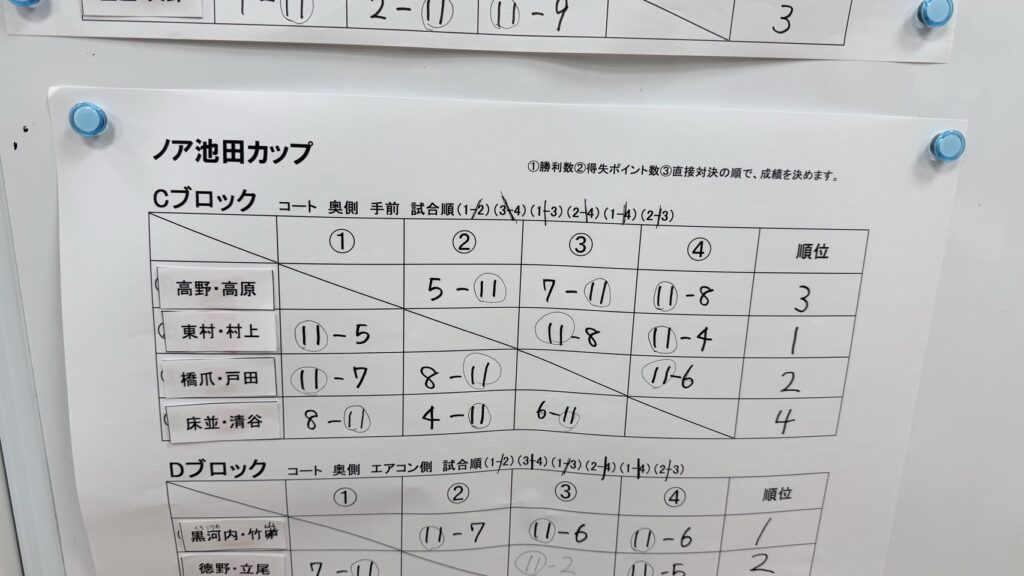 1-⑪ 2-⑪ ⑪-9 3
ノア池田カップ
①勝利数②得失ポイント数③直接対決の順で、成績を決めます。
Cブロック コート 奥側 手前 試合順(1-2)(3-4)(1-3)(2-4)(1-4)(2-3)
① ② ③ ④ 順位
高野・高原 5-⑪ 7-⑪ ⑪-8 3
東村・村上 ⑪-5 ⑪-8 ⑪-4 1
橋爪・戸田 ⑪-7 8-⑪ ⑪-6 2
床並・清谷 8-⑪ 4-⑪ 6-⑪ 4
Dブロック コート 奥側 エアコン側 試合順(1-2)(3-4)(1-3)(2-4)(1-4)(2-3)
① ② ③ ④ 順位
黒河内・竹 ⑪-7 ⑪-6 ⑪-6 1
徳野・立尾 7-⑪ ⑪-2 ⑪-5 2